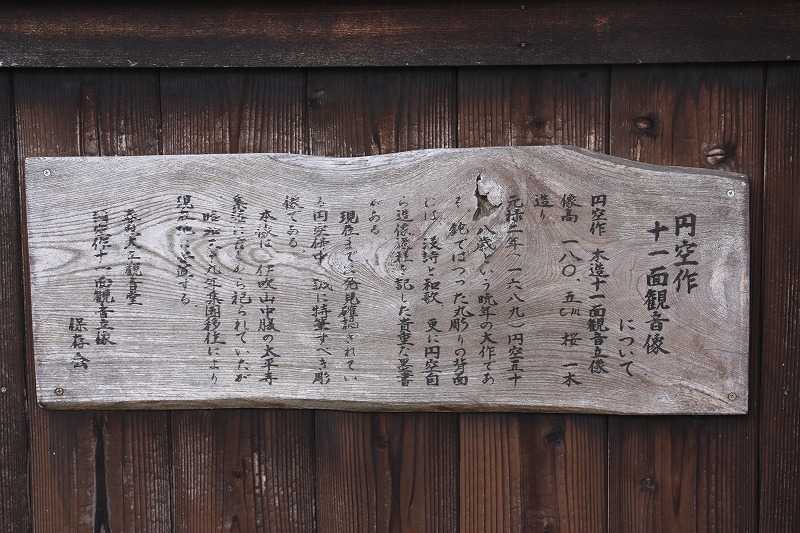 円空作
十一面観音像
について
円空作 木造十一面観音立像
像高 一八〇、五㌢ 桜 一木
造り
元禄二年(一六八九)円空五十
八歳という晩年の大作であ
り、鉈ではつった丸彫りの背面
には、漢詩と和歌 更に円空自
ら造像過程を記した貴重な墨書
がある
現在までに発見確認されてい
る円空仏中、誠に特筆すべき彫
像である。
本像は、伊吹山中腹の太平寺
集落に古くから祀られていたが
昭和三十九年集団移住により
現在地に安置する。
春照太平観音堂
円空作十一面観音立像
保存会